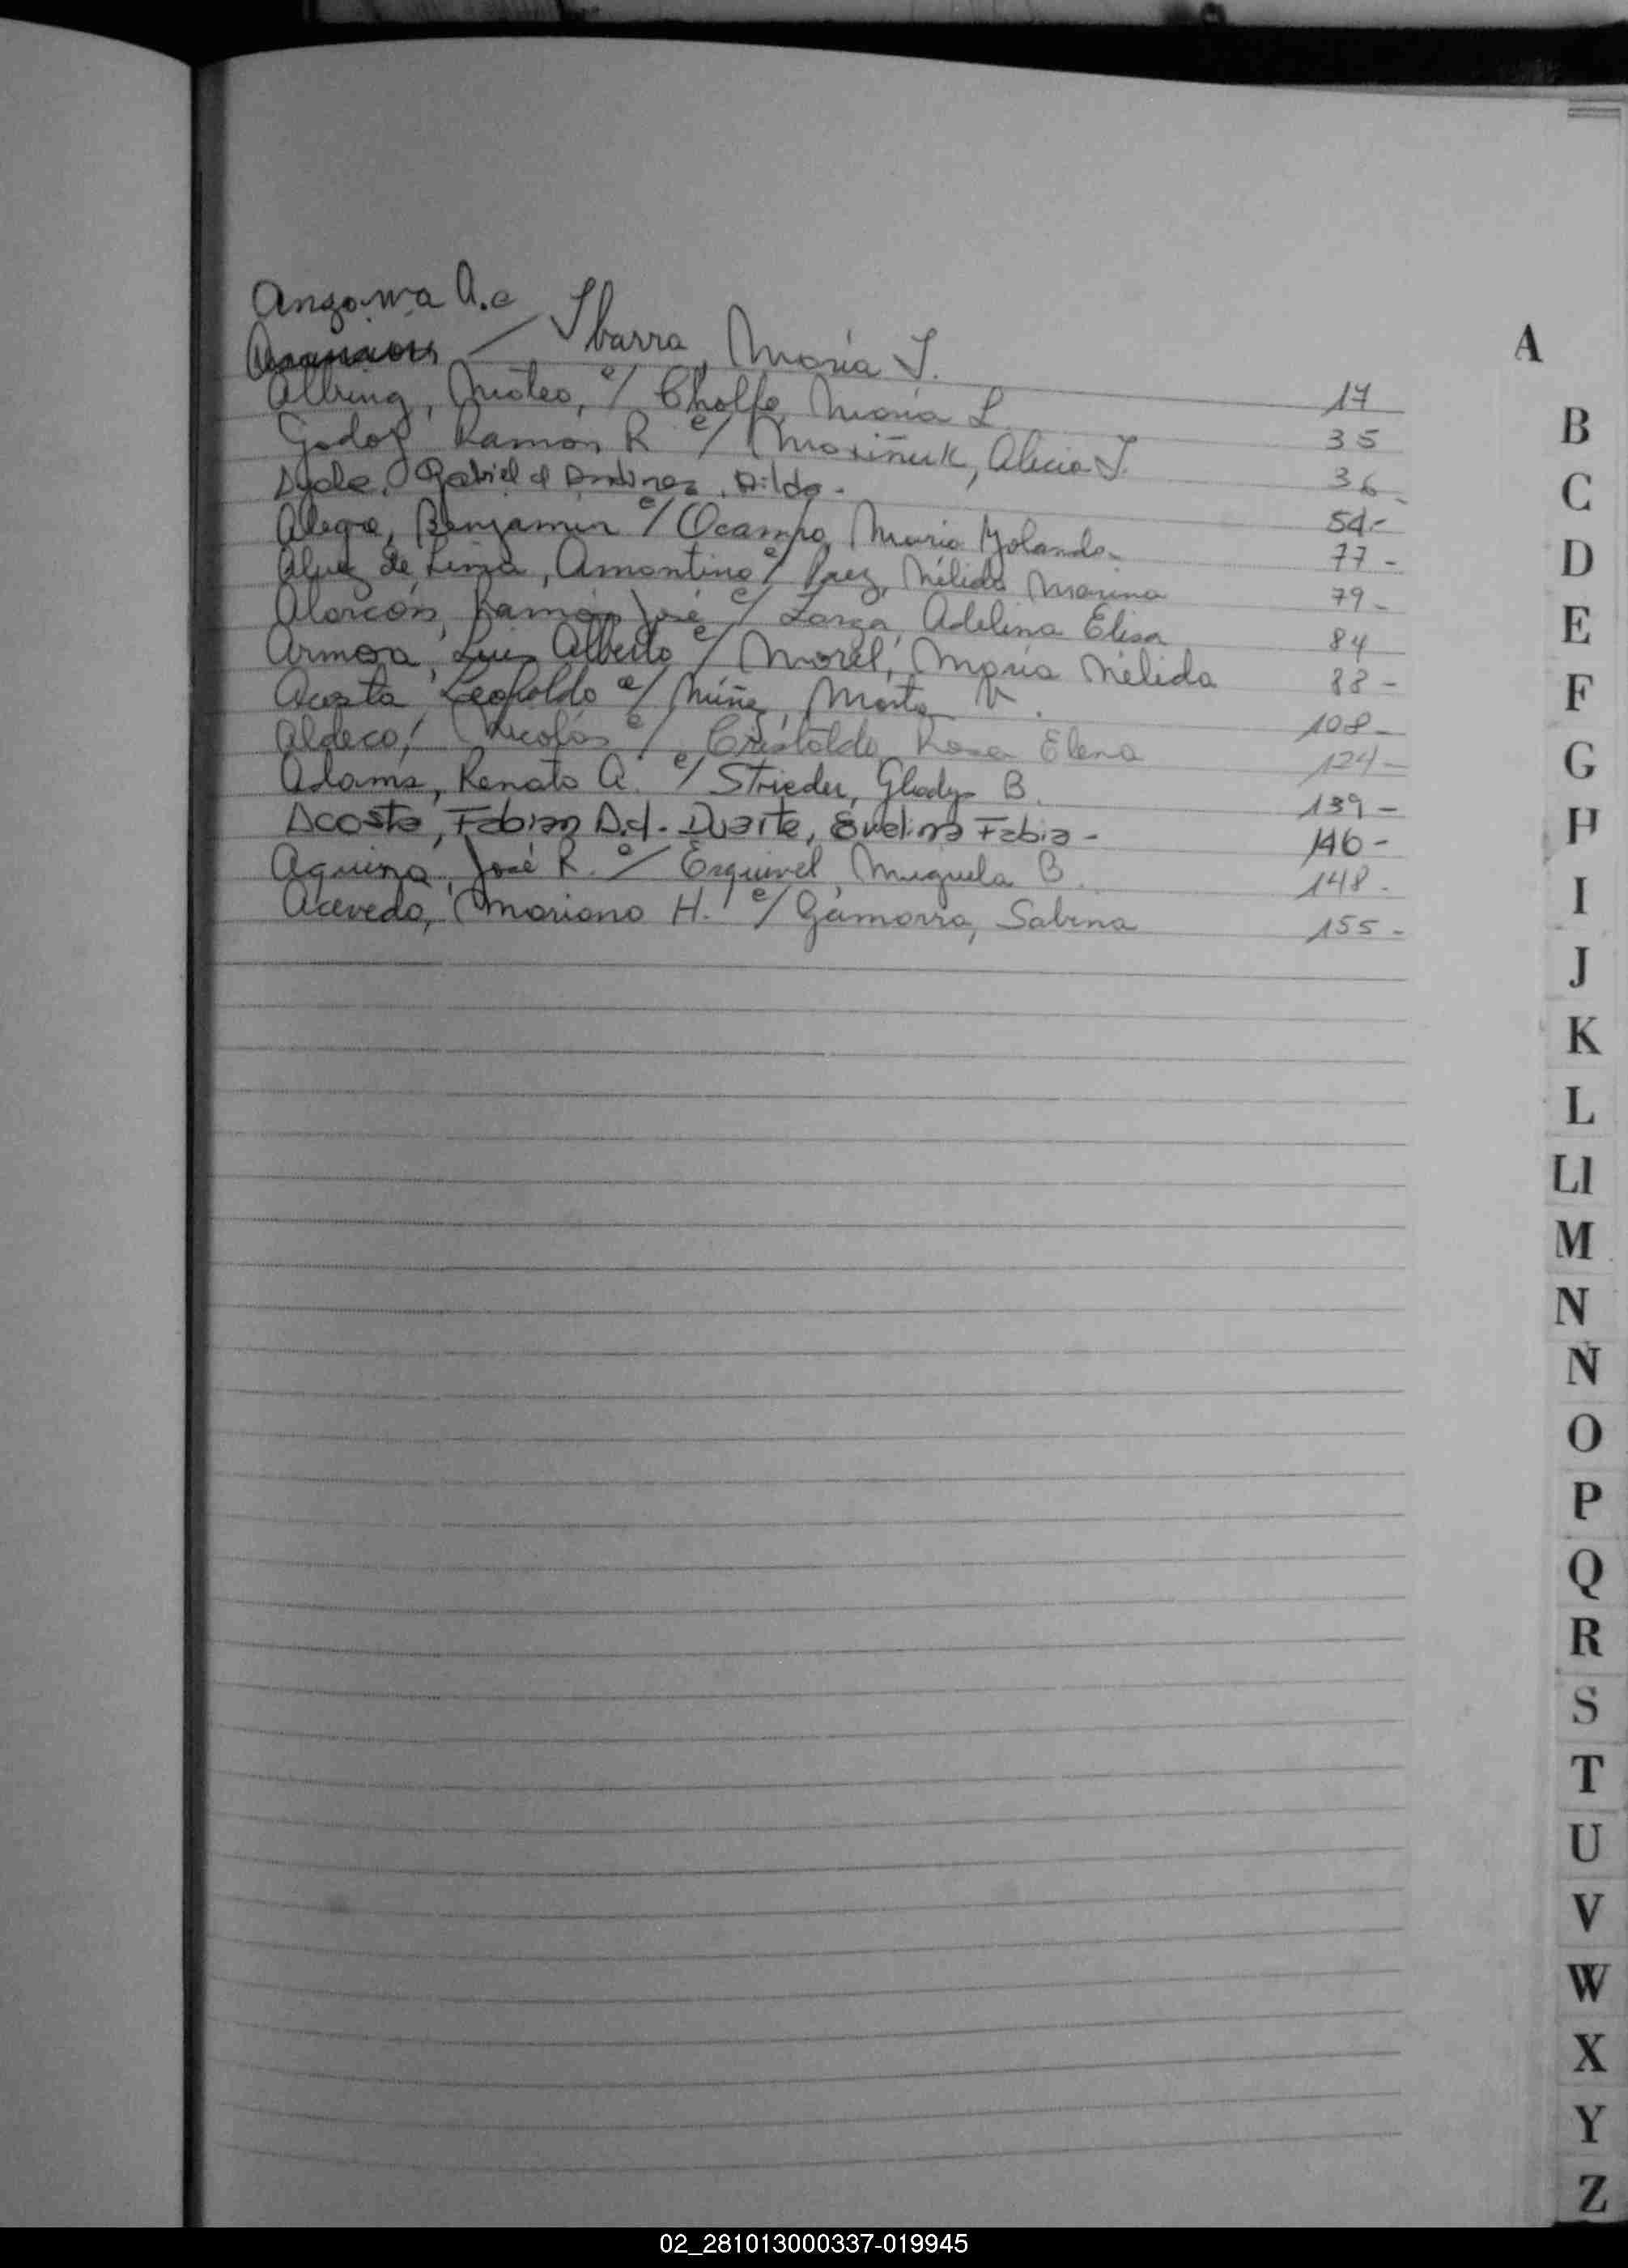 Ibarra, María J. 17
Albring, Mateo, c/ Cholfe, María L. 35
Godoy Ramón R c/ Mariñuk, Alicia J. 36-
Ayala, Gabriel c/ Antúnez, Hilda.- 54.-
Alegre, Benjamín c/ Ocampo, Maria Yolanda.- 77-
Alvez de Lima, Amantino c/ Paez, Nélida Marina 79-
Alarcón, Ramón José c/ Zarza, Adelina Elisa 84
Armoa, Luis Alberto c/ Morel, María Nélida 88-
Acosta, Leopoldo c/ Núñez, Marta V. 108-
Aldeco, Nicolás c/ Cristaldo, Rosa Elena 124-
Adams, Renato A. c/ Strieder, Gladys B. 139-
Acosta, Fabian A.c/. Duarte, Evelina Fabia- 146-
Aquino, José R. c/ Esquivel, Miguela B. 148-
Acevedo, Mariano H. c/ Gamorra, Sabina 155-
A
B
C
D
E
F
G
H
I
J
K
L
Ll
M
N
Ñ
O
P
Q
R
S
T
U
V
W
X
Y
Z
02_281013000337-019945